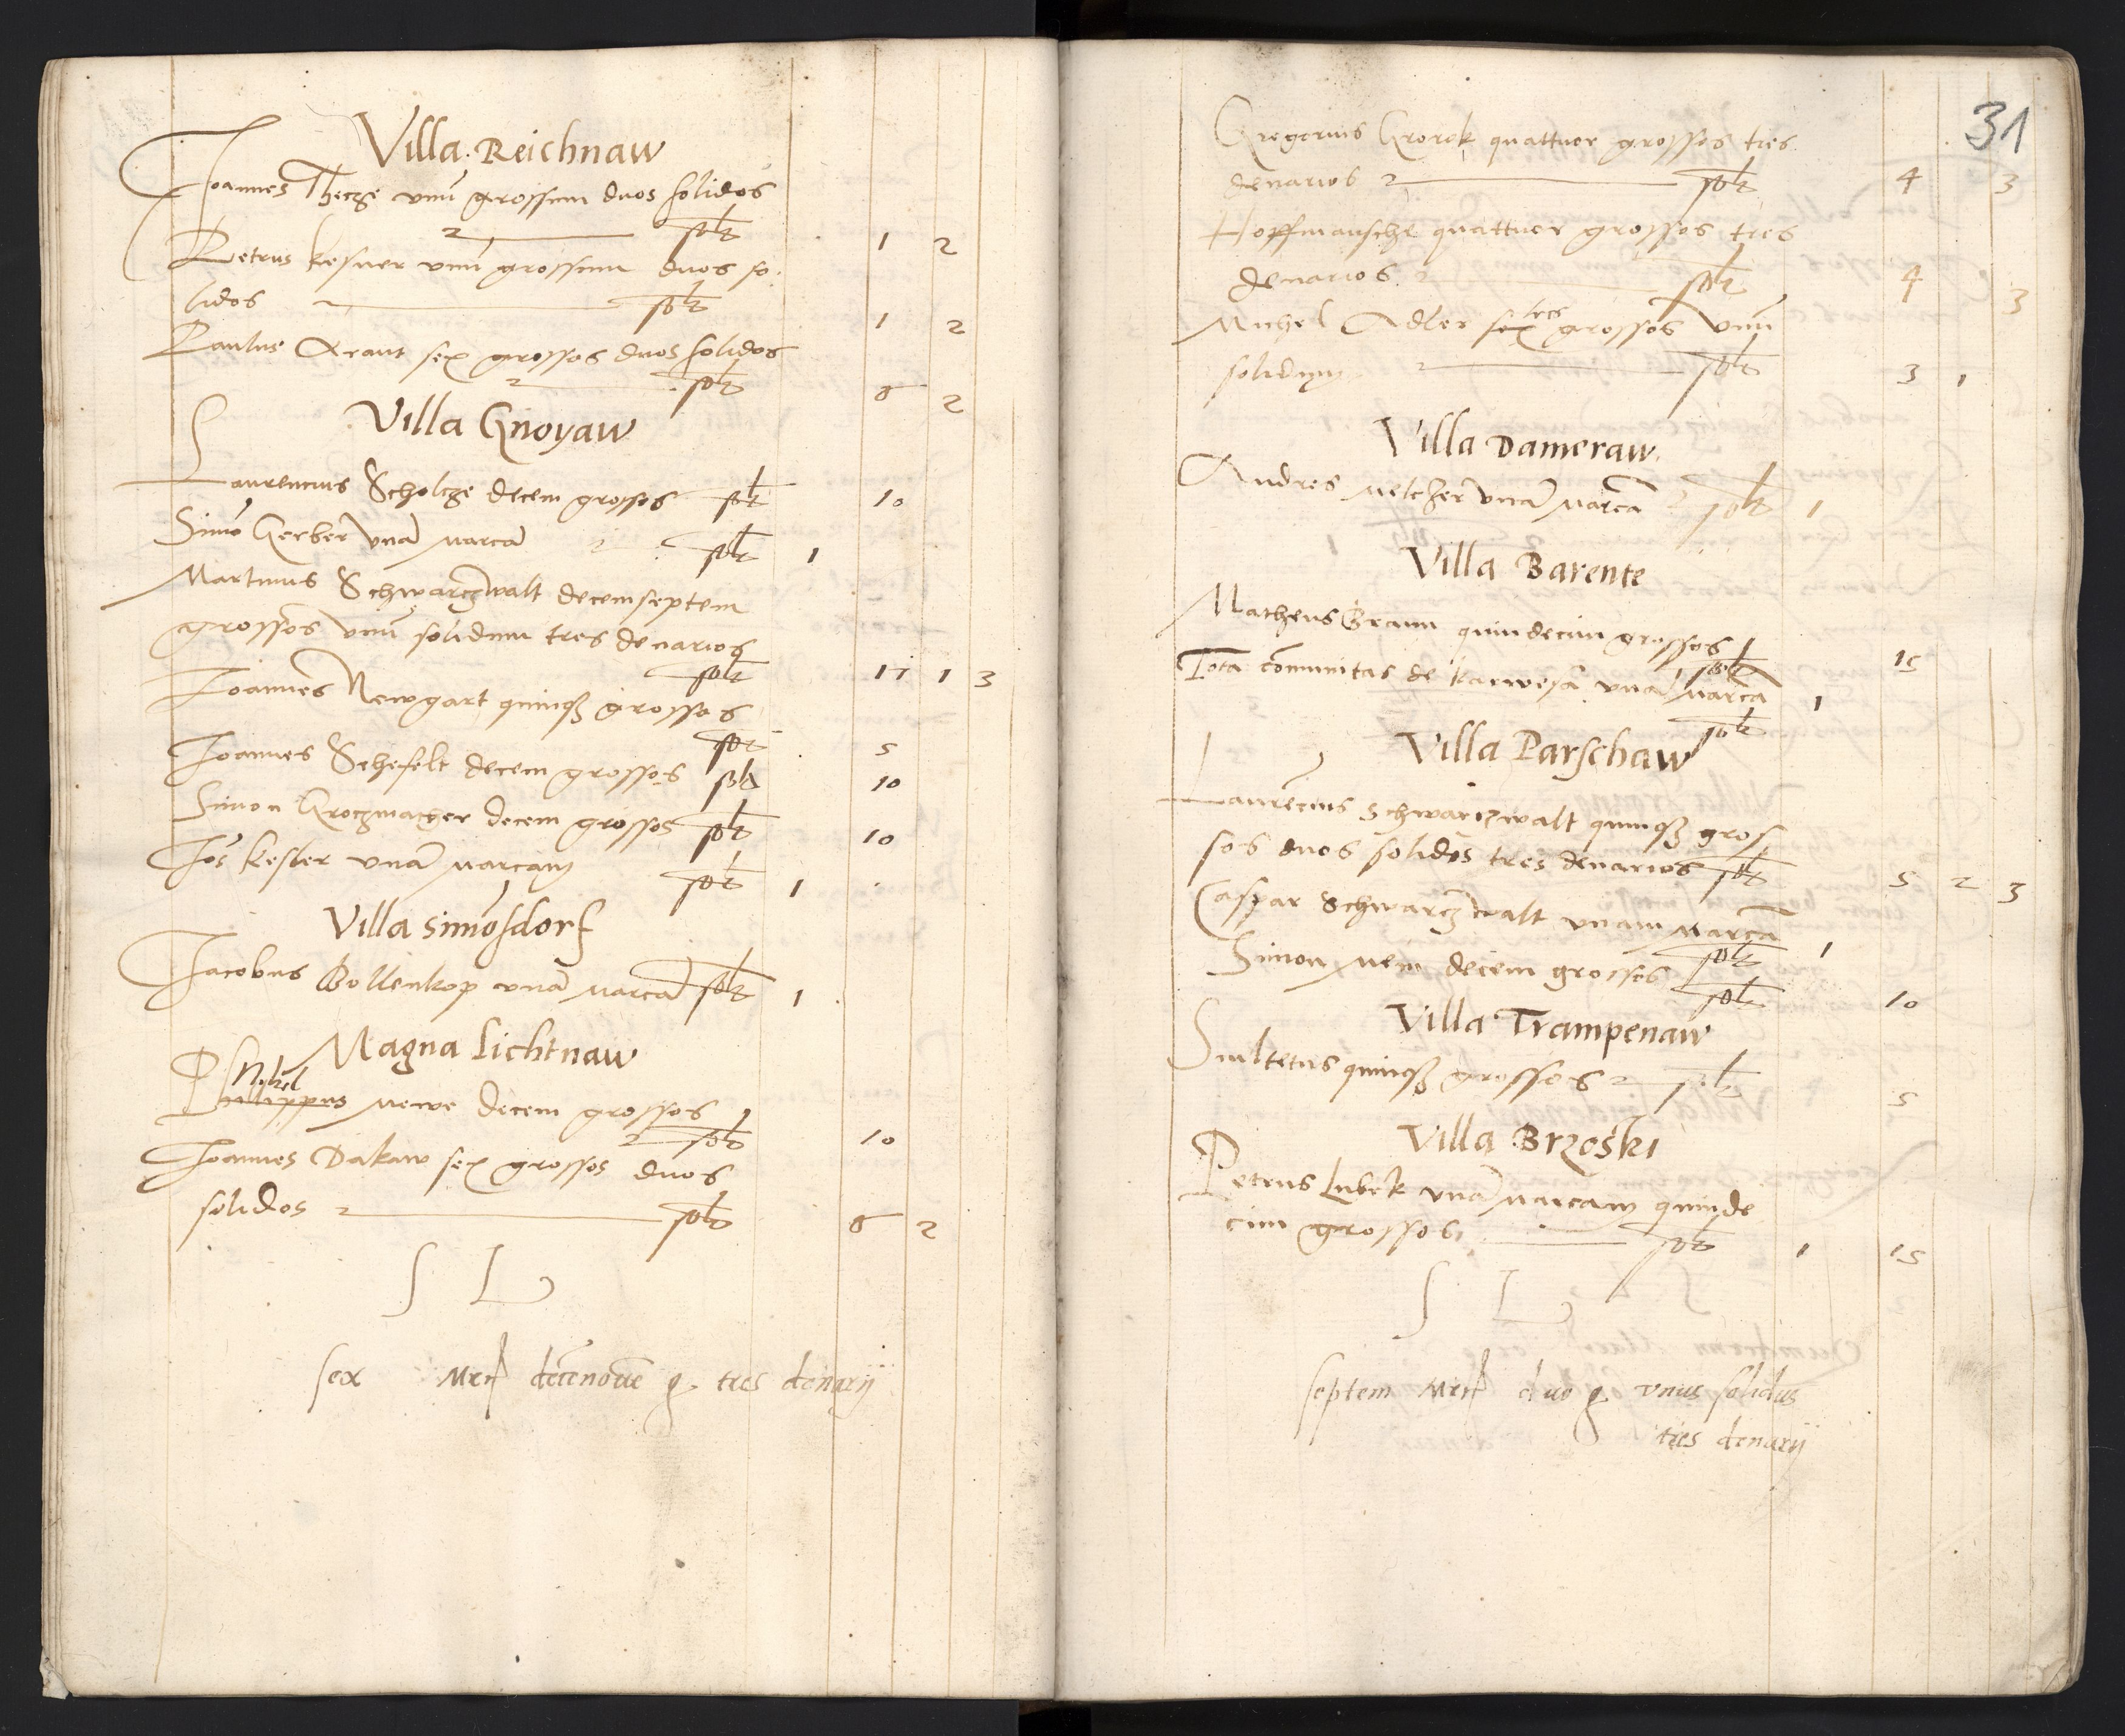 Villa Reichnaw
Joannes Thecze vnu̅ grossum duos solidos
solt 1 2
Petrus kesner vnu̅ grossum duos so
lidos solt 1 2
Paulus Arant sex grossos duos solidos
solt 6 2
Villa Gnoyaw
Laurencius Scholcze decem grossos solt 10
Simo̅ Gerber vna̅ marca̅ solt 1
Martinus Schwarczwalt decemseptem
grossos vnu̅ solidum tres denarios
solt 17 1 3
Joannes Newgart quinqʒ grossos
solt 5
Joannes Schefelt decem grossos solt 10
Simon Kroczmacher decem grossos solt 10
Jo̅s kesler vna̅ marcam solt 1
Villa simo̅sdorf
Jacobus Bollenkop vna̅ marca̅ solt 1
Magna lichtnaw
Nikel
Philippus newe decem grossos
solt 10
Joannes Dakaw sex grossos duos
solidos solt 6 2
S L
sex Mrc dece̅nove̅ g tres denarij
31
Gregorius Grorok quattuor grossos tres
denarios solt 4 3
Hoffmansche quattuor grossos tres
denarios solt 4 3
tres
Michel Adler sex grossos vnu̅
solidum solt 3 1
Villa Dameraw
Andres melczer vna̅ marca̅ solt 1
Villa Barente
Matheus Braun quindecim grossos
solt 15
Tota co̅munitas de karwesa vna̅ marca̅ 1
solt
Villa Parschaw
Laure̅cius schwarczwalt quinqʒ gros
sos duos solidos tres denarios solt 5 2 3
Caspar Schwarczwalt vnam marca̅
solt 1
Simon nem decem grossos
solt 10
Villa Trampenaw
Scultetus quinqʒ grossos solt 5
Villa Brzoski
Petrus Lubek vna̅ marcam quinde
cim grossos solt 1 15
S L
septem Mrc duo g vnus solidus
tres denarij